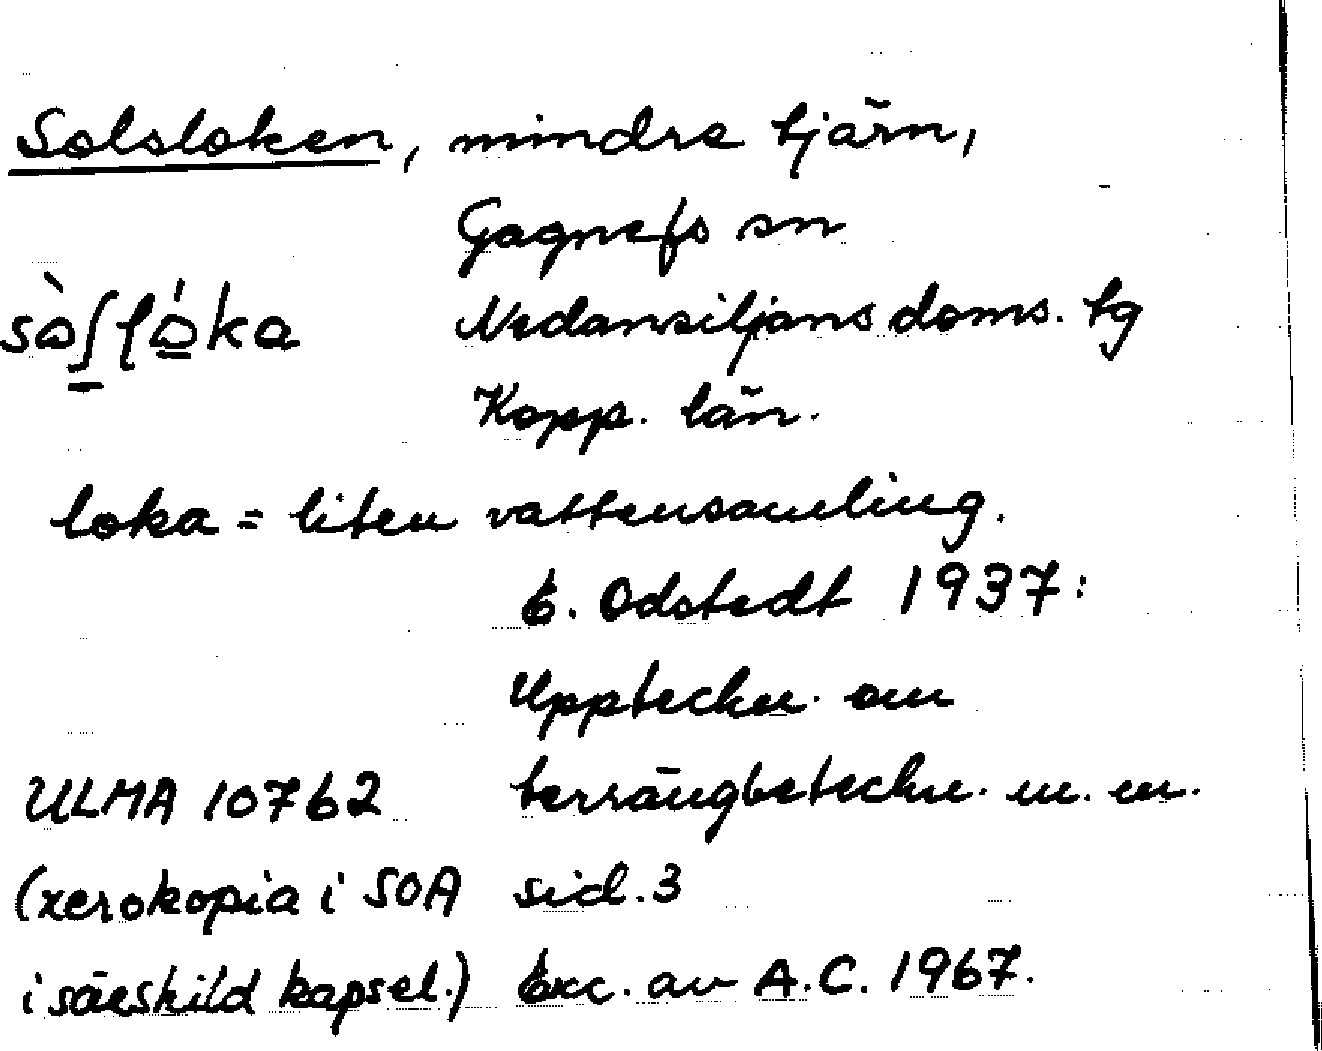 Solsloken, mindre tjärn,
Gagnefs sn
Nedansiljans doms. tg
Kopp. län.
loka = liten vattensamling.
E. Odstedt 1937:
Uppteckn. om
ULMA 10762 terrängbeteckn. m. m.
(xerokopia i SOA sid. 3
i särskild kapsel.) Exc. av A.C. 1967.